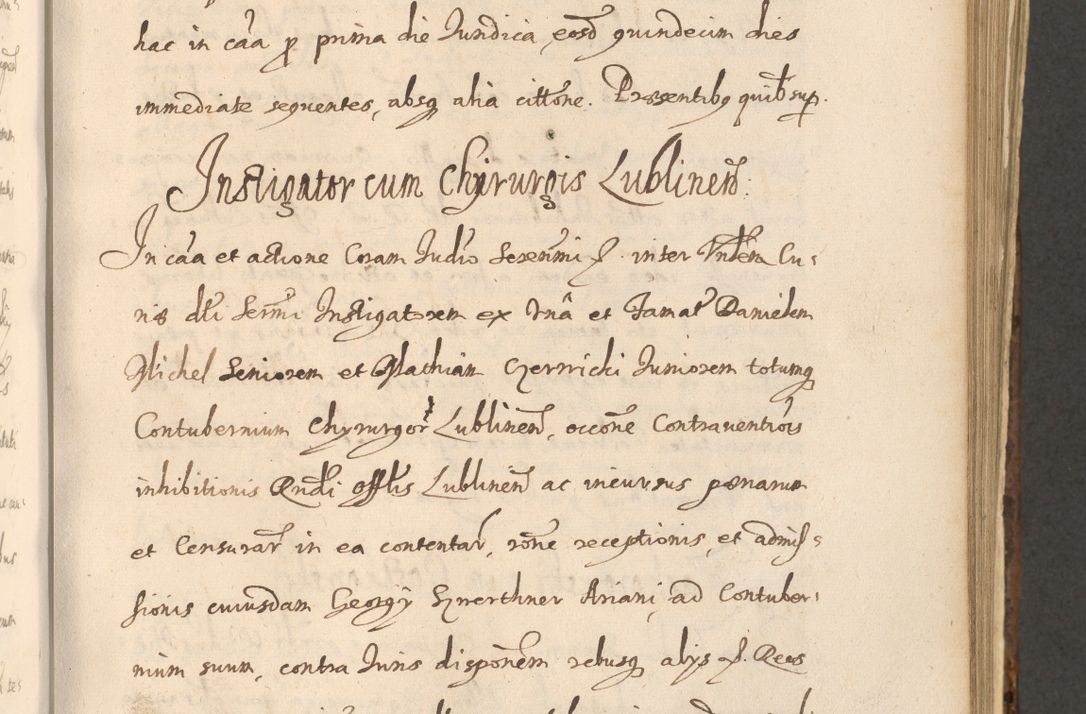 hac in cãa p prima die Juridica, eosd quindecim dies
immediate sequentes, absq alia cittõne. Præsentibq quibsup.
Instigator cum Chirurgis Lublinen:
In cãa et actione Coram Judio Serenmi P. inter Cu-
ris dti Sermi Instigatorem ex Una et Famat Danielem
Michel Seniorem et Mathiam Czernicki Juniorem totumq
Contubernium Chyrurgor Lublinen, occõne Contraventiõis
inhibitionis Rndi Offlis Lublinen ac incursus pænarum
et Censurar in ea contentar, rõne receptionis, et admis-
sionis cuiusdam Georgÿ Hnerthner Ariani, ad Contuber-
nium suum, contra Juris disponem rebusq alÿs P. Reos